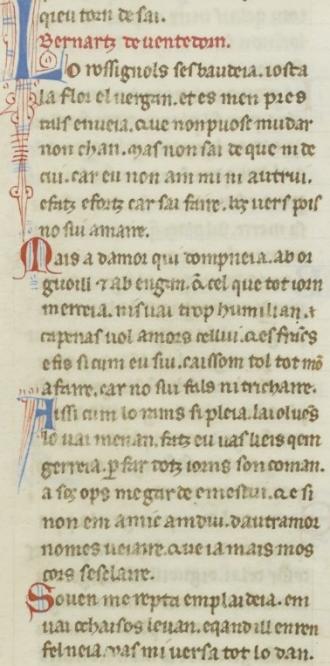 queu torn de sai.
Bernartz deuentedorn.
Lo rossignols sesbaudeia. iosta
la flor el uergan. et es men pres
tals enueia. que non puosc mudar
non chan. Mas non sai de que ni de
cui. car eu non am mi ni autrui.
efatz esfortz car sai faire. bos uers pois
no sui amaire.
Mais a damor qui dompneia. ab or
guoill ⁊ ab engan. q̄ cel que tot iorn
merceia. nis uai trop humilian. a
capenas uol amors cellui. q̄es francs
e fis si cum eu sui. caissom tol tot mō
afaire. car no sui fals ni trichaire.
Aissi cum lo rams si pleia. lai olues
lo uai menan. fatz eu uas lieis qem
gerreia. ꝑ far totz iorns son coman.
a sos ops me gart de enemistui. q̄e si
non em amic amdui. dautramor
no mes ueiaire. q̄ue ia mais mos
cors sesclaire.
Souen me repta em plaideia. em
uai ochaisos leuan. e qand ill en ren
felneia. uas mi uersa tot lo dan.